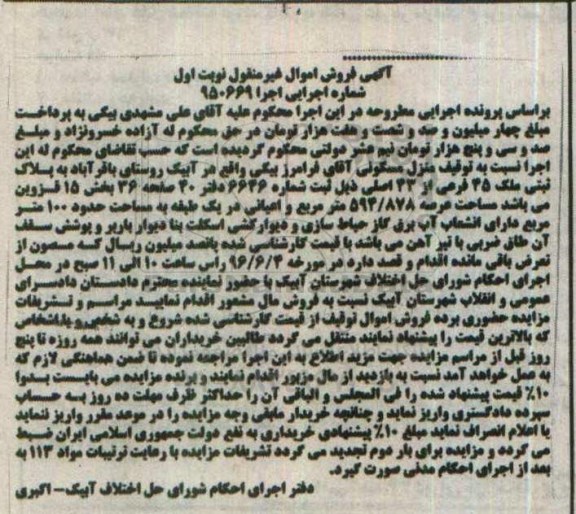 آگهی فروش اموال غیرمنقول نوبت اول
شماره اجرایی اجرا ۹۵۰۶۶۹
براساس پرونده اجرایی مطروحه در این اجرا محکوم علیه آقای علی مشهدی بیگی به پرداخت
مبلغ چهار میلیون و صد و شصت و هفت هزار تومان در حق محکوم له آزاده خسرونژاد و مبلغ
صد و سی و پنج هزار تومان نیم عشر دولتی محکوم گردیده است که حسب تقاضای محکوم له این
اجرا نسبت به توقیف منزل مسکونی آقای فرامرز بیگی واقع در آبیک روستای باقرآباد به پلاک
ثبتی ملک ۴۵ فرعی از ۴۳ اصلی ذیل ثبت شماره ۶۶۴۶ دفتر ۴۰ صفحه ۳۶ بخش ۱۵ قزوین
می باشد مساحت عرصه ۵۹۴/۸۷۸ متر مربع و اعیانی در یک طبقه به مساحت حدود ۱۰۰ متر
مربع دارای انشعاب آب برق گاز حیاط سازی و دیوارکشی اسکلت بنا دیوار باربر و پوشش سقف
آن طاق ضربی با تیر آهن می باشد با قیمت کارشناسی شده پانصد میلیون ریال که مصون از
تعرض باقی مانده اقدام و قصد دارد در مورخه ۹۶/۶/۴ رأس ساعت ۱۰ الی ۱۱ صبح در محل
اجرای احکام شورای حل اختلاف شهرستان آبیک با حضور نماینده محترم دادستان دادسرای
عمومی و انقلاب شهرستان آبیک نسبت به فروش مال مشعور اقدام نمایید مراسم و تشریفات
مزایده حضوری برده فروش اموال توقیف از قیمت کارشناسی شده شروع و به شخص و یا اشخاص
که بالاترین قیمت را پیشنهاد نمایند منتقل می گردد طالبین خریداران می توانند همه روزه تا پنج
روز قبل از مراسم مزایده جهت مزید اطلاع به این اجرا مراجعه نموده تا ضمن هماهنگی لازم که
به عمل خواهد آمد نسبت به بازدید از مال مزبور اقدام نمایند و برنده مزایده می بایست بدوا
۱۰٪ قیمت پیشنهاد شده را فی المجلس و الباقی آن را حداکثر ظرف مهلت ده روز به حساب
سپرده دادگستری واریز نماید و چنانچه خریدار مابقی وجه مزایده را در موعد مقرر واریز ننماید
یا اعلام انصراف نماید مبلغ ۱۰٪ پیشنهادی خریداری به نفع دولت جمهوری اسلامی ایران ضبط
می گردد و مزایده برای بار دوم تجدید می گردد تشریفات مزایده با رعایت ترتیبات مواد ۱۱۳ به
بعد از اجرای احکام مدنی صورت گیرد.
دفتر اجرای احکام شورای حل اختلاف آبیک- اکبری